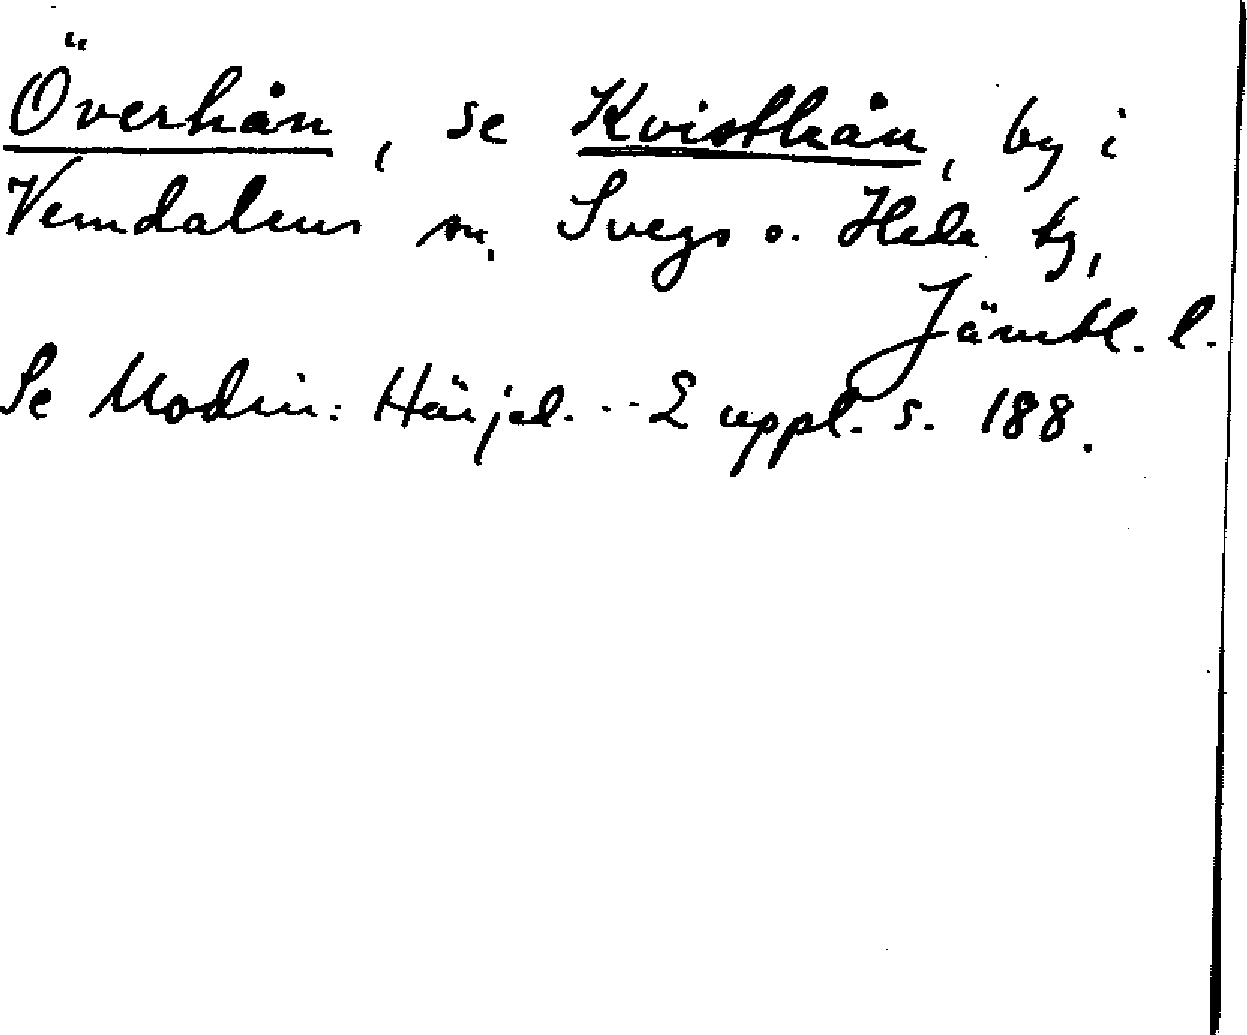 Överhån, se Kvisthån, by i
Vemdalens sn, Svegs o. Hede tg,
Jämtl. l.
Se Modin: Härjed. -- 2 uppl. s. 188.